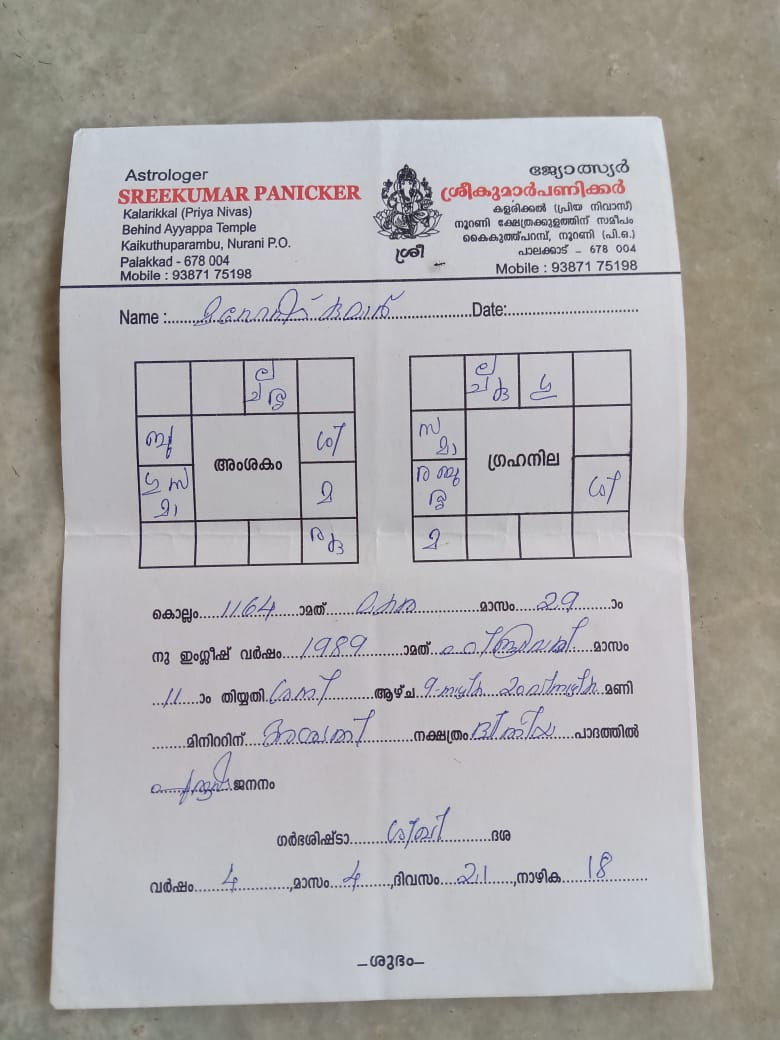 Astrologer
SREEKUMAR PANICKER
Kalarikkal (Priya Nivas)
Behind Ayyappa Temple
Kaikuthuparambu, Nurani P.O.
Palakkad - 678 004
Mobile : 93871 75198
ശ്രീ
ജ്യോത്സ്യർ
ശ്രീകുമാർപണിക്കർ
കളരിക്കൽ (പ്രിയ നിവാസ്)
നൂറണി ക്ഷേത്രക്കുളത്തിന് സമീപം
കൈകുത്ത്പറമ്പ്, നൂറണി (പി.ഒ.)
പാലക്കാട് - 678 004
Mobile : 93871 75198
Name : Date:
ല
ച
ബു
ശി
അംശകം
ഗു സ
മാ
മ
ര
ല
ച ഗു
സ
മാ
ഗ്രഹനില
ര ബു
ശി
മ
കൊല്ലം 1164 ാമത് മകരം മാസം 29 ാം
നു ഇംഗ്ലീഷ് വർഷം 1989 ാമത് ഫിബ്രുവരി മാസം
11 ാം തിയ്യതി ശനി ആഴ്ച 9 മണി
മിനിററിന് നക്ഷത്രം ദ്വിതീയ പാദത്തിൽ
ജനനം
ഗർഭശിഷ്ടാ ദശ
വർഷം 4 ,മാസം 4 ,ദിവസം 21 ,നാഴിക 18
–ശുഭം–